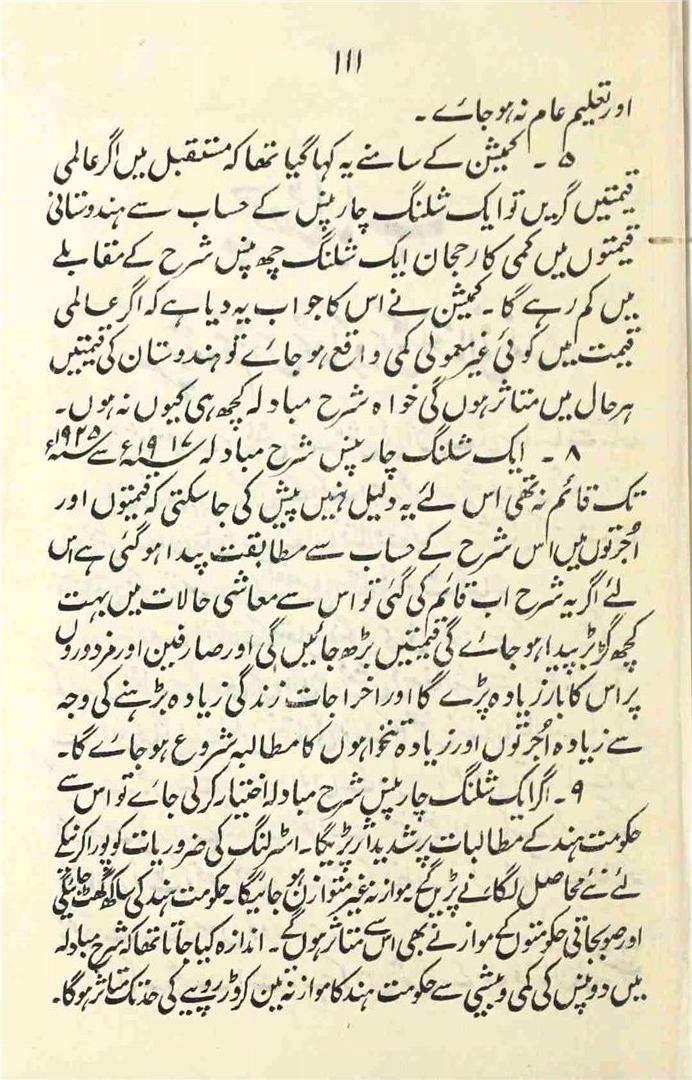 ۱۱۱
اور تعلیم عام نہ ہو جائے ۔
۵ ۔ کمیشن کے سامنے یہ کہا گیا تھا کہ مستقبل میں اگر عالمی
قیمتیں گریں تو ایک شلنگ چار پنس کے حساب سے ہندوستانی
قیمتوں میں کمی کا رحجان ایک شلنگ چھ پنس شرح کے مقابلے
میں کم رہے گا ۔ کمیشن نے اس کا جواب یہ دیا ہے کہ اگر عالمی
قیمت میں کوئی غیر معمولی کمی واقع ہو جائے تو ہندوستان کی قیمتیں
ہر حال میں متاثر ہوں گی خواہ شرح مبادلہ کچھ ہی کیوں نہ ہوں ۔
۸ ۔ ایک شلنگ چار پنس شرح مبادلہ ۱۹۱۷ء سے ۱۹۲۵ء
تک قائم نہ تھی اس لئے یہ دلیل نہیں پیش کی جا سکتی کہ قیمتوں اور
اُجرتوں میں اس شرح کے حساب سے مطابقت پیدا ہو گئی ہے اس
لئے اگر یہ شرح اب قائم کی گئی تو اس سے معاشی حالات میں بہت
کچھ گڑبڑ پیدا ہو جائے گی قیمتیں بڑھ جائیں گی اور صارفین اور مزدوروں
پر اس کا بار زیادہ پڑے گا اور اخراجات زندگی زیادہ بڑہنے کی وجہ
سے زیادہ اُجرتوں اور زیادہ تنخواہوں کا مطالبہ شروع ہو جائے گا ۔
۹ ۔ اگر ایک شلنگ چار پنس شرح مبادلہ اختیار کر لی جائے تو اس سے
حکومت ہند کے مطالبات پر شدید اثر پڑیگا ۔ اسٹرلنگ کی ضروریات کو پورا کرنیکے
لئے نئے محاصل لگانے پڑینگے موازنہ غیر متوازن ہو جائیگا ۔ حکومت ہند کی ساکھ گھٹ جائیگی
اور صوبجاتی حکومتوں کے موازنے بھی اس سے متاثر ہوں گے ۔ اندازہ کیا جاتا تھا کہ شرح مبادلہ
میں دو پنس کی کمی و بیشی سے حکومت ہند کا موازنہ تین کروڑ روپیے کی حد تک متاثر ہوگا ۔